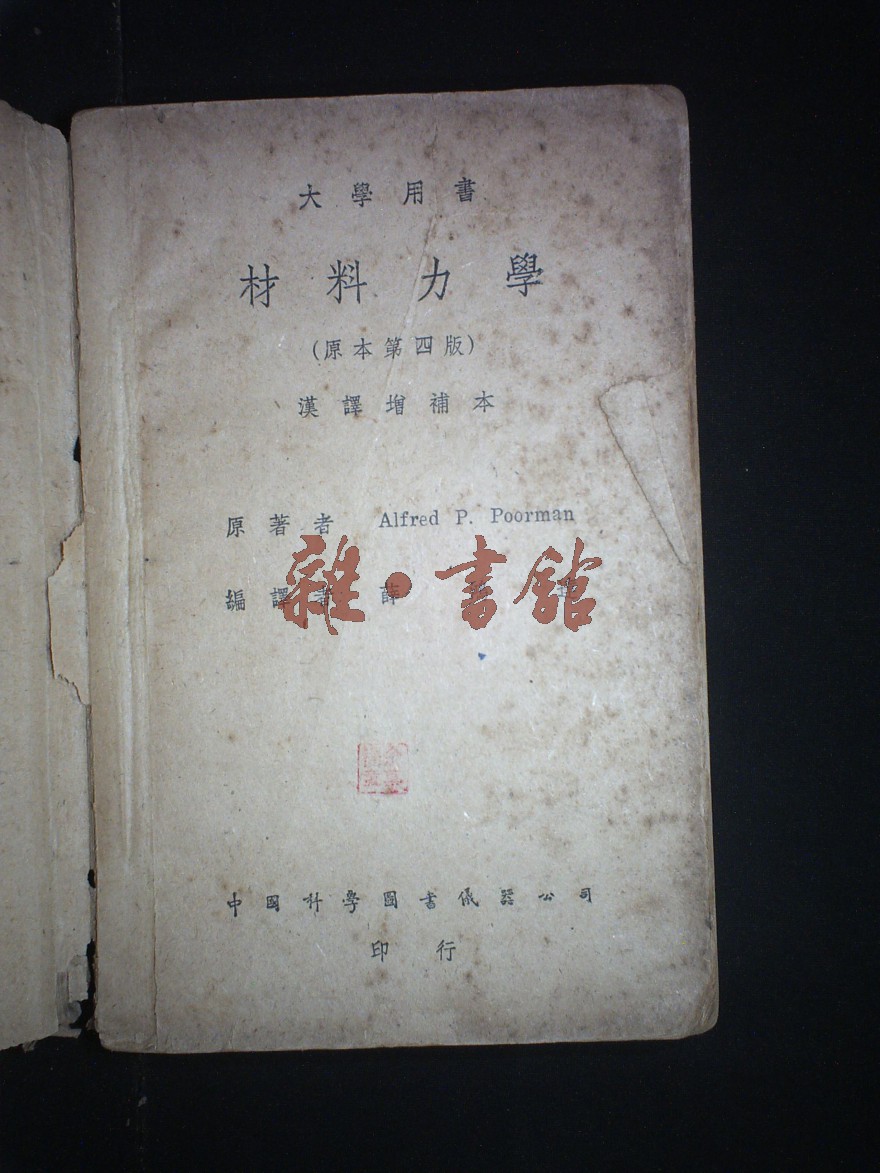 大學用書
材料力學
(原本第四版)
漢譯增補本
原著者 Alfred P. Poorman
編譯者 薛
雜·書館
中國科學圖書儀器公司
印行